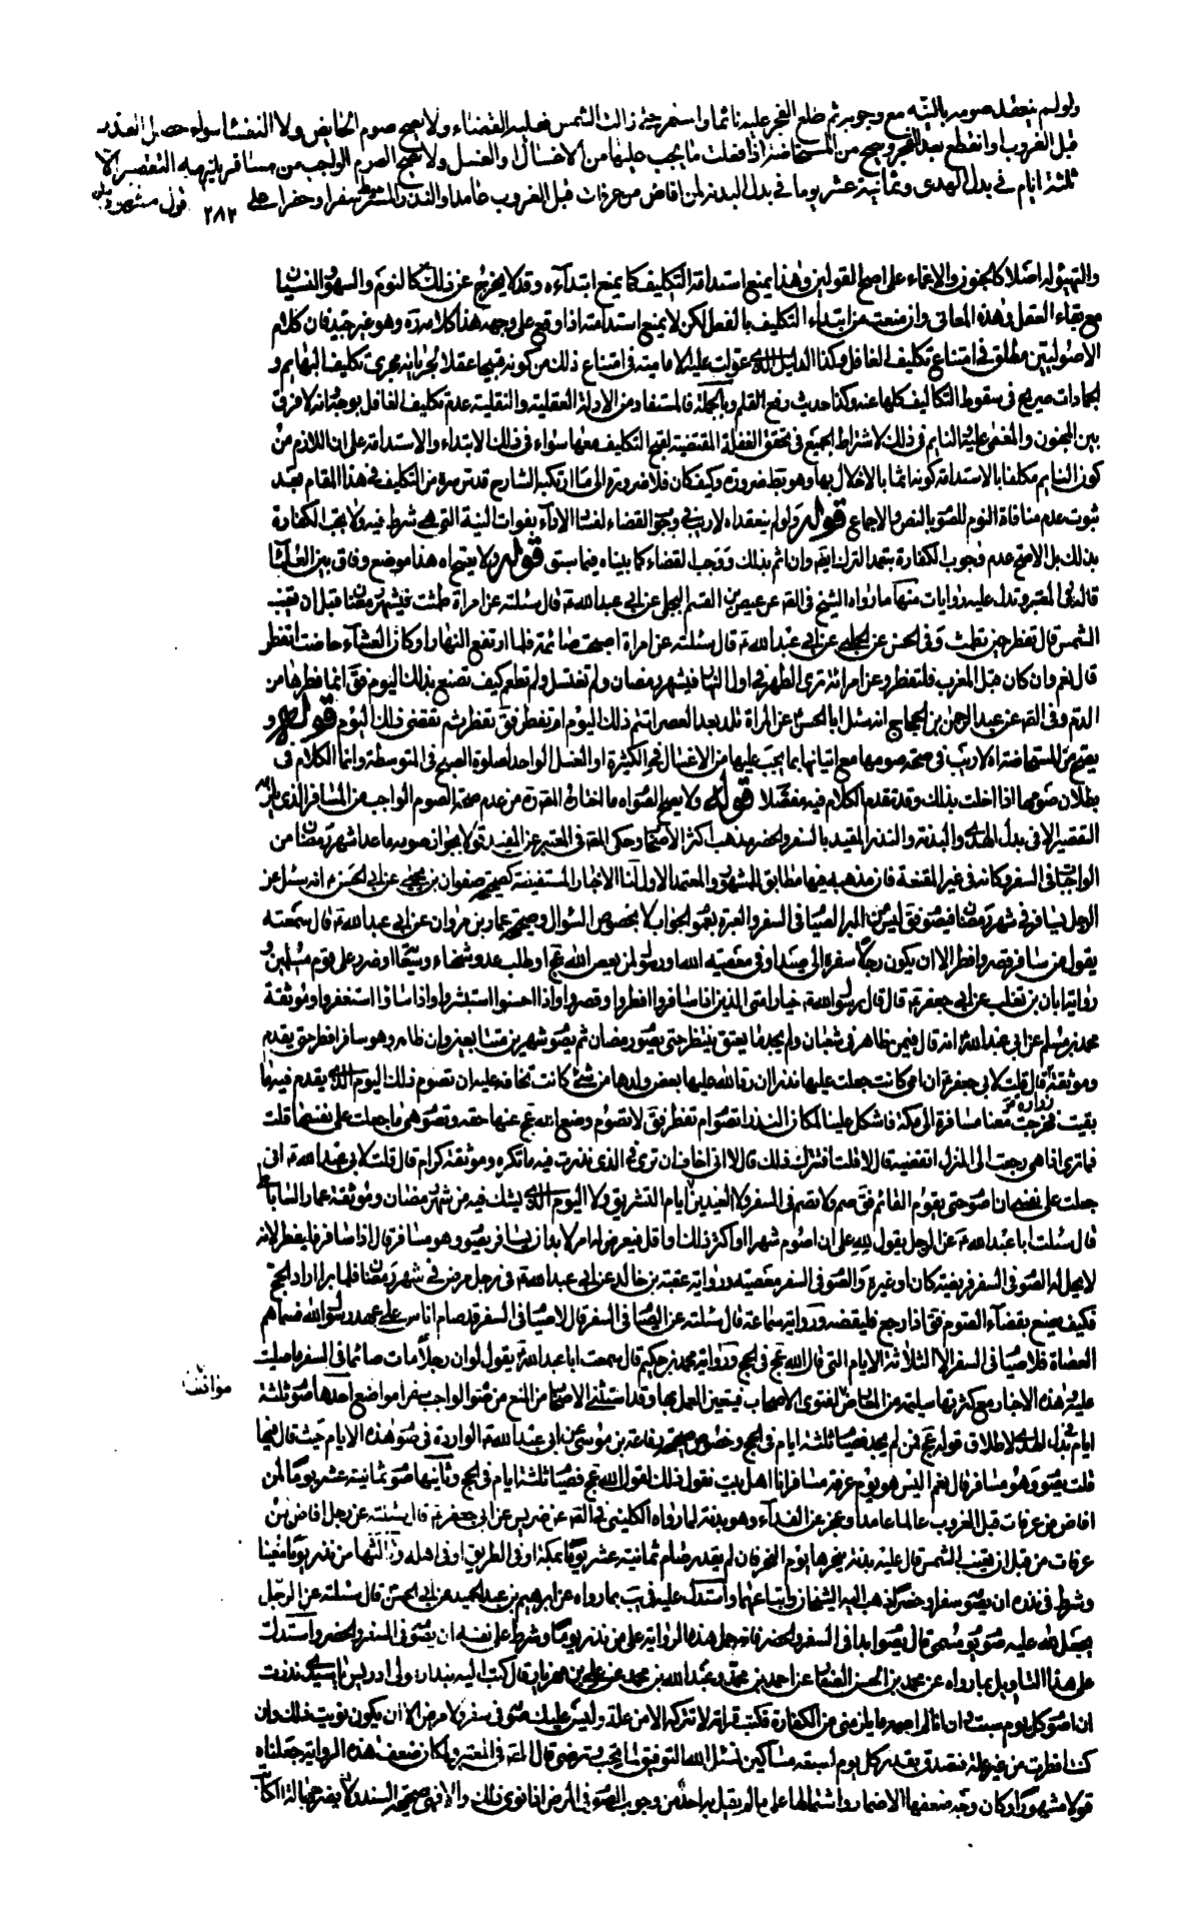 ولو لم ينعقد صومه بالنية مع وجوبه ثم طلع الفجر عليه نائما واستمر حتى زالت الشمس فعليه القضاء ولا يصح صوم الحايض ولا النفساء سواء حصل العذر
قبل الغروب او انقطع بعد الفجر ويصح من المستحاضة اذا فعلت ما يجب عليها من الاغسال او الغسل ولا يصح الصوم الواجب من مسافر يلزمه التقصير الا
ثلثة ايام في بدل الهدى وثمانية عشر يوما في بدل البدنة لمن افاض من عرفات قبل الغروب عامدا والنذر المشروط سفرا وحضرا على قول مشهور
٢٨٢
والتهيؤ له اصلا كالجنون والاغماء على اصح القولين وهذا يمنع استدامة التكليف كما يمنع ابتداءه وقد لا يخرج عن ذلك كالنوم والسهو والنسيان
مع بقاء العقل وهذه المعانى وان منعت من ابتداء التكليف بالفعل لكن لا يمنع استدامته اذا وقع على وجهه هذا كلامه ره وهو غير جيد فان كلام
الاصوليين مطلق في امتناع تكليف الغافل وكذا الدليل الذى عولت عليه الامامية في امتناع ذلك من كونه قبيحا عقلا لجريانه مجرى تكليف البهايم و
الجمادات صريح في سقوط التكاليف كلها عنه وكذا حديث رفع القلم وبالجملة فالمستفاد من الادلة العقلية والنقلية عدم تكليف الغافل بوجه وانه لا فرق
بين المجنون والمغمى عليه والنايم في ذلك لاشتراط الجميع في تحقق الغفلة المقتضية لقبح التكليف معها سواء في ذلك الابتداء والاستدامة على ان اللازم من
كون النايم مكلفا بالاستدامة كونه اثما بالاخلال بها وهو بط ضرورة وكيف كان فلا ضرورة الى ما ارتكبه الشارح قدس سره من التكليف في هذا المقام بعد
ثبوت عدم منافاة النوم للصوم بالنص والاجماع قوله ولو لم ينعقد اه لا ريب في وجوب القضاء لفساد الاداء بفوات النية التى هى شرط فيه ولا يجب الكفارة
بذلك بل الاصح عدم وجوب الكفارة بتعمد الترك ايضا وان اثم بذلك ووجب القضاء كما بيناه فيما سبق قوله ولا يصح اه هذا موضع وفاق بين العلماء
قاله في المعتبر وتدل عليه روايات منها ما رواه الشيخ في الصحيح عن عيص بن القسم البجلى عن ابى عبد الله ع قال سئلته عن امراة طمثت في شهر رمضان قبل ان تغيب
الشمس قال تفطر حين تطمث وفي الحسن عن الحلبى عن ابى عبد الله ع قال سئلته عن امراة اصبحت صائمة فلما ارتفع النهار او كان العشاء حاضت اتفطر
قال نعم وان كان قبل المغرب فلتفطر وعن امراة ترى الطهر في اول النهار في شهر رمضان ولم تغتسل ولم تطعم كيف تصنع بذلك اليوم فق انما فطرها من
الدم وفي الصحيح عن عبد الرحمن بن الحجاج انه سئل ابا الحسن ع عن المراة تلد بعد العصر اتتم ذلك اليوم ام تفطر فق تفطر ثم تقضى ذلك اليوم قوله و
يصح من المستحاضة اه لا ريب في صحة صومها مع اتيانها بما يجب عليها من الاغسال في الكثيرة او الغسل الواحد لصلوة الصبح في المتوسطة وانما الكلام في
بطلان صومها اذا اخلت بذلك وقد تقدم الكلام فيه مفصلا قوله ولا يصح الصوم اه ما اختاره المصره من عدم صحة الصوم الواجب من المسافر الذى يلزمه
التقصير الا في بدل الهدى والبدنة والنذر المقيد بالسفر والحضر مذهب اكثر الاصحاب وحكى المص في المعتبر عن المفيد قولا بجواز صوم ما عدا شهر رمضان من
الواجبات في السفر وكانه في غير المقنعة فان مذهبه فيها مطابق للمشهور والمعتمد الاول لنا الاخبار المستفيضة كصحيحة صفوان بن يحيى عن ابى الحسن ع انه سئل عن
الرجل يسافر في شهر رمضان فيصوم فق ليس من البر الصيام في السفر والعبرة بعموم الجواب لا بخصوص السؤال وصحيحة عمار بن مروان عن ابى عبد الله ع قال سمعته
يقول من سافر قصر وافطر الا ان يكون رجلا سفره الى صيد او في معصية الله او رسولا لمن يعصى الله عج او طلب عدو وشحناء وسعاية او ضرر على قوم مسلمين و
رواية ابان بن تغلب عن ابى جعفر ع قال قال رسول الله ص خيار امتى الذين اذا سافروا افطروا وقصروا واذا احسنوا استبشروا واذا اساؤا استغفروا وموثقة
محمد بن مسلم عن ابى عبد الله ع انه قال فيمن ظاهر في شعبان ولم يجد ما يعتق ينتظر حتى يصوم رمضان ثم يصوم شهرين متتابعين وان ظاهر وهو مسافر افطر حتى يقدم
وموثقة زرارة قال قلت لابى جعفر ع ان امى كانت جعلت عليها نذرا ان رد الله عليها بعض ولدها من شئ كانت تخافه عليه ان تصوم ذلك اليوم الذى يقدم فيه ما
بقيت فخرجت معنا مسافرة الى مكة فاشكل علينا لمكان النذر اتصوم ام تفطر فق لا تصوم وضع الله عج عنها حقه وتصوم هى ما جعلت على نفسها قلت
فما ترى اذا هى رجعت الى المنزل اتقضيه قال لا قلت افتترك ذلك قال لا انى اخاف ان ترى في الذى نذرت فيه ما تكره وموثقة كرام قال قلت لابى عبد الله ع انى
جعلت على نفسى ان اصوم حتى يقوم القائم فق صم ولا تصم في السفر ولا العيدين ولا ايام التشريق ولا اليوم الذى يشك فيه من شهر رمضان وموثقة عمار الساباطى
قال سئلت ابا عبد الله ع عن الرجل يقول لله على ان اصوم شهرا او اكثر من ذلك او اقل فيعرض له امر لا بد له ان يسافر يصوم وهو مسافر قال اذا سافر فليفطر لانه
لا يحل له الصوم في السفر فريضة كان او غيره والصوم في السفر معصية ورواية عقبة بن خالد عن ابى عبد الله ع في رجل مرض في شهر رمضان فلما برا اراد الحج
فكيف يصنع بقضاء الصوم فق اذا رجع فليقضه ورواية سماعة قال سئلته عن الصيام في السفر قال لا صيام في السفر قد صام اناس على عهد رسول الله فسماهم
العصاة فلا صيام في السفر الا الثلاثة الايام التى قال الله عج في الحج ورواية محمد بن حكيم قال سمعت ابا عبد الله ع يقول لو ان رجلا مات صائما في السفر ما صليت
عليه وهذه الاخبار مع كثرتها سليمة من المعارض لفتوى الاصحاب فيتعين العمل بها وقد استثنى الاصحاب من المنع من صوم الواجب سفرا مواضع احدها صوم ثلثة
ايام في بدل الهدى لاطلاق قوله عج فمن لم يجد فصيام ثلثة ايام في الحج وخصوص صحيحة رفاعة بن موسى عن ابى عبد الله ع الواردة في صوم هذه الايام حيث قال فيها
قلت يصوم وهو مسافر قال نعم اليس هو يوم عرفة مسافرا انا اهل بيت نقول ذلك لقول الله عج فصيام ثلثة ايام في الحج وثانيها صوم ثمانية عشر يوما لمن
افاض من عرفات قبل الغروب عالما عامدا وعجز عن الفداء وهو بدنة لما رواه الكلينى في الصحيح عن ضريس عن ابى جعفر ع قال سئلته عن رجل افاض من
عرفات من قبل ان تغيب الشمس قال عليه بدنة ينحرها يوم النحر فان لم يقدر صام ثمانية عشر يوما بمكة او في الطريق او في اهله وثالثها من نذر يوما معينا
وشرط في نذره ان يصومه سفرا وحضرا ذهب اليه الشيخان واتباعهما واستدل عليه في يب بما رواه عن ابرهيم بن عبد الحميد عن ابى الحسن ع قال سئلته عن الرجل
يجعل لله عليه صوم يوم مسمى قال يصومه ابدا في السفر والحضر فانه حمل هذه الرواية على من نذر يوما وشرط على نفسه ان يصوم في السفر والحضر واستدل
على هذا التاويل بما رواه عن محمد بن الحسن الصفار عن احمد بن محمد وعبد الله بن محمد عن على بن مهزيار قال كتب اليه بندار مولى ادريس يا سيدى نذرت
ان اصوم كل يوم سبت وان انا لم اصمه ما يلزمنى من الكفارة فكتب وقراته لا تتركه الا من علة وليس عليك صوم في سفر ولا مرض الا ان يكون نويت ذلك وان
كنت افطرت من غير علة فتصدق بقدر كل يوم لسبعة مساكين نسئل الله التوفيق لما يحب ويرضى قال المص في المعتبر ولمكان ضعف هذه الرواية جعلناه
قولا مشهورا وكان وجه ضعفها الاضمار واشتمالها على ما لم يقل به احد من وجوب الصوم في المرض اذا نوى ذلك والا فهى صحيحة السند ولا يضر جهالة الكاتب